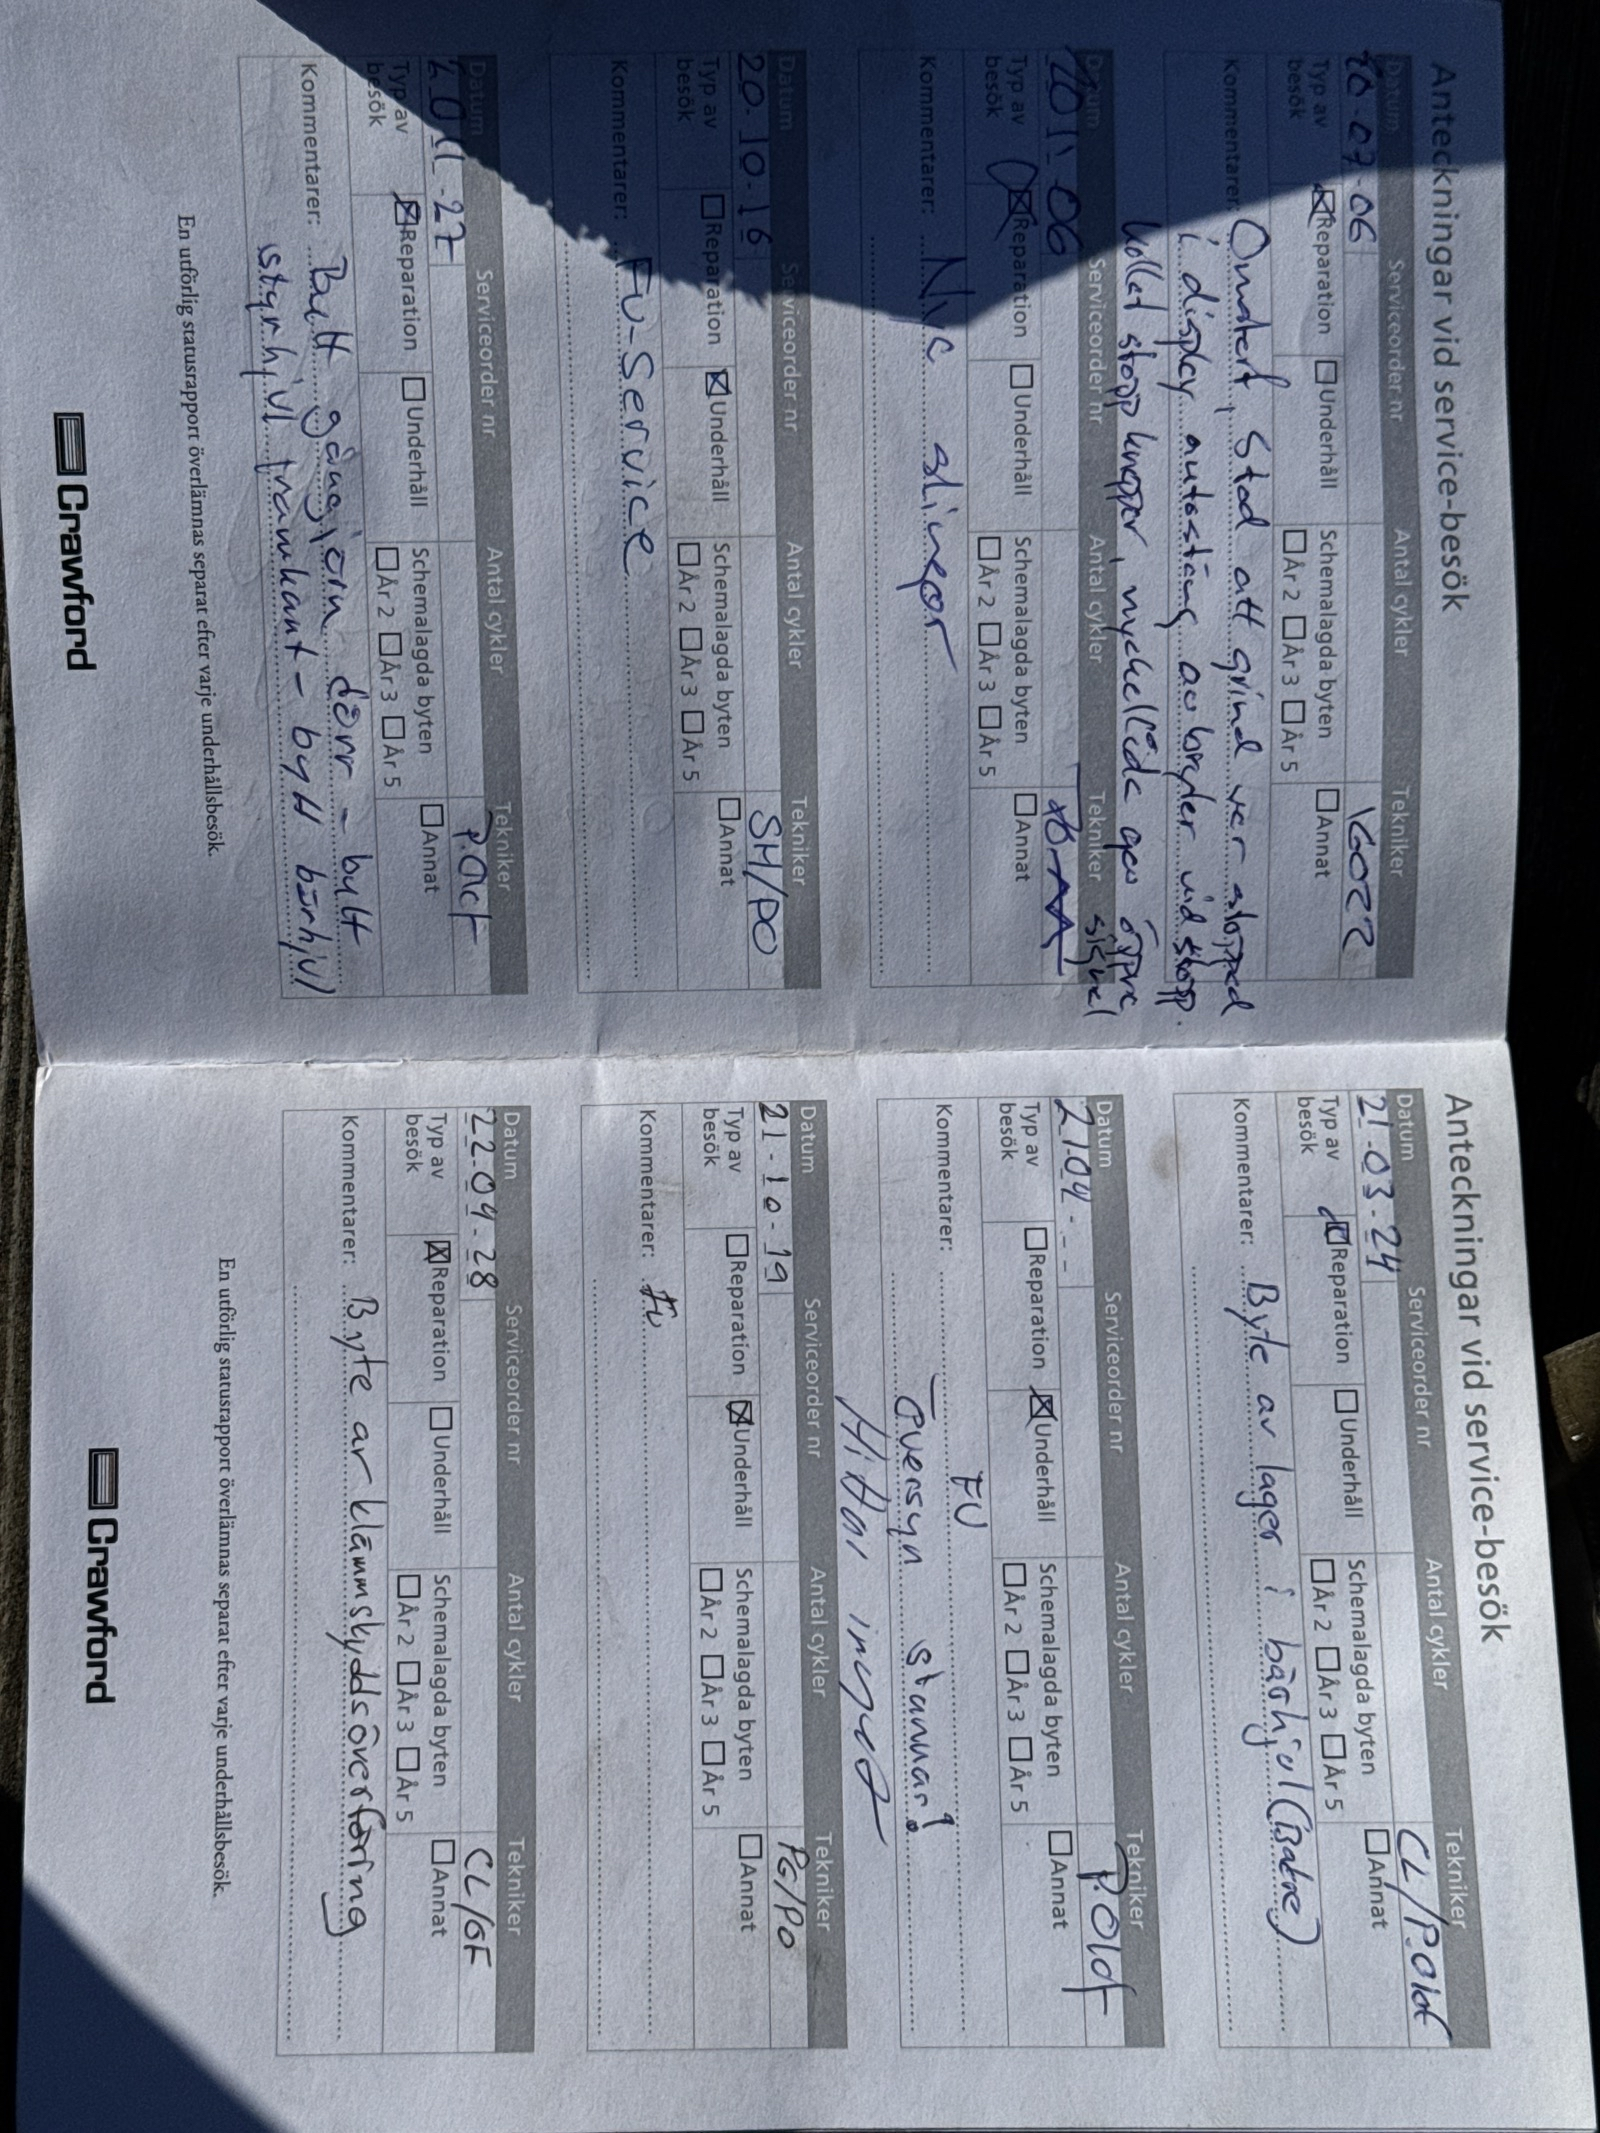 Anteckningar vid service-besök
Datum Serviceorder nr Antal cykler Tekniker
-07-06 16022
Typ av besök Reparation Underhåll Schemalagda byten Annat
År 2 År 3 År 5
Kommentarer: Omstart, Stod att grind var stoppad
i display autostäng avbryder vid stopp.
kollat stopp knappar, nyckellåda gav öppne
signal
Datum Serviceorder nr Antal cykler Tekniker
2011-06
Typ av besök Reparation Underhåll Schemalagda byten Annat
År 2 År 3 År 5
Kommentarer: Nya slingor
Datum Serviceorder nr Antal cykler Tekniker
20-10-16 SH/PO
Typ av besök Reparation Underhåll Schemalagda byten Annat
År 2 År 3 År 5
Kommentarer: FU-Service
Datum Serviceorder nr Antal cykler Tekniker
-27
Typ av besök Reparation Underhåll Schemalagda byten Annat
År 2 År 3 År 5
Kommentarer: Bult gångjärn dörr - bult
styrhjul framkant - bytt bärhjul
En utförlig statusrapport överlämnas separat efter varje underhållsbesök.
Crawford
Anteckningar vid service-besök
Datum Serviceorder nr Antal cykler Tekniker
21-03-24 CL/P.Olof
Typ av besök Reparation Underhåll Schemalagda byten Annat
År 2 År 3 År 5
Kommentarer: Byte av lager i bärhjul (Bakre)
Datum Serviceorder nr Antal cykler Tekniker
21.04-- P.Olof
Typ av besök Reparation Underhåll Schemalagda byten Annat
År 2 År 3 År 5
Kommentarer: FU
Översyn stannar!
Hittar inget
Datum Serviceorder nr Antal cykler Tekniker
21-10-19 PG/PO
Typ av besök Reparation Underhåll Schemalagda byten Annat
År 2 År 3 År 5
Kommentarer: FU
Datum Serviceorder nr Antal cykler Tekniker
22-04-28 CL/GF
Typ av besök Reparation Underhåll Schemalagda byten Annat
År 2 År 3 År 5
Kommentarer: Byte av klämmskyddsöverföring
En utförlig statusrapport överlämnas separat efter varje underhållsbesök.
Crawford